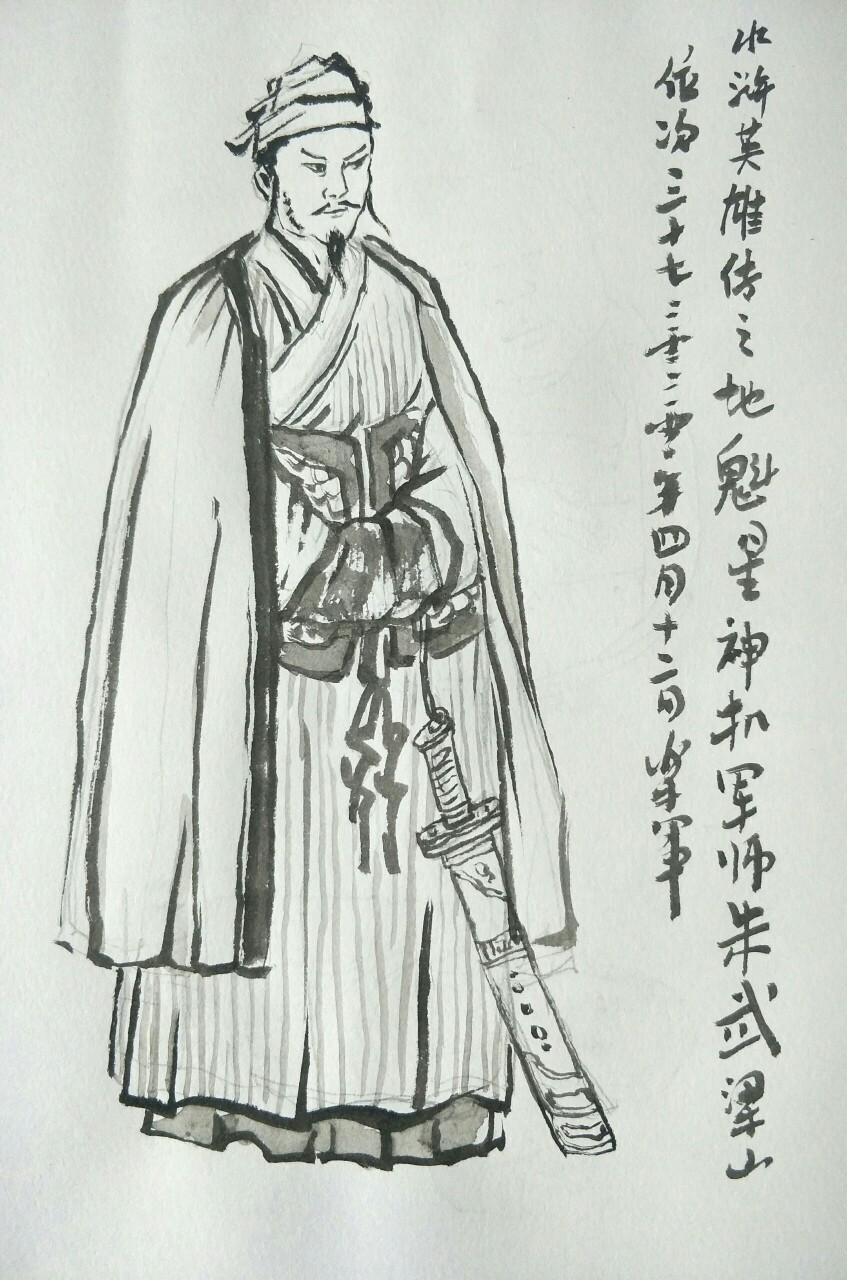 水浒英雄传之地魁星神机军师朱武梁山
位次三十七二零二零年四月十二日学军